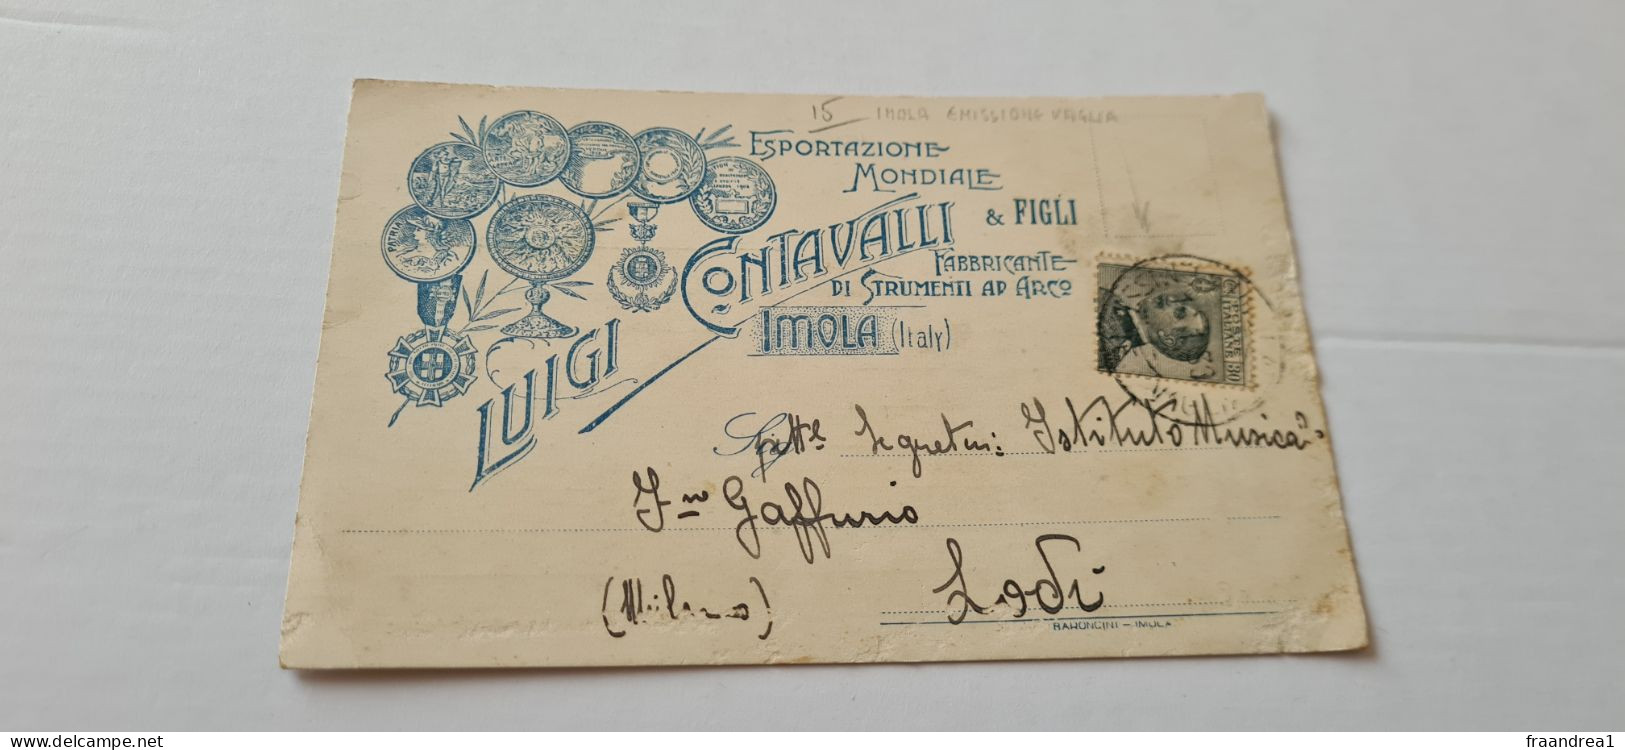 15 IMOLA EMISSIONE VAGLIA
ESPORTAZIONE
MONDIALE
LUIGI CONTAVALLI & FIGLI
FABBRICANTE
DI STRUMENTI AD ARCO
IMOLA (Italy)
PATRIA
POSTE ITALIANE
30
Sig
Istituto Musica
Gaffurio
Lodi
(Milano)
BARONCINI - IMOLA
delcampe.net
fraandrea1